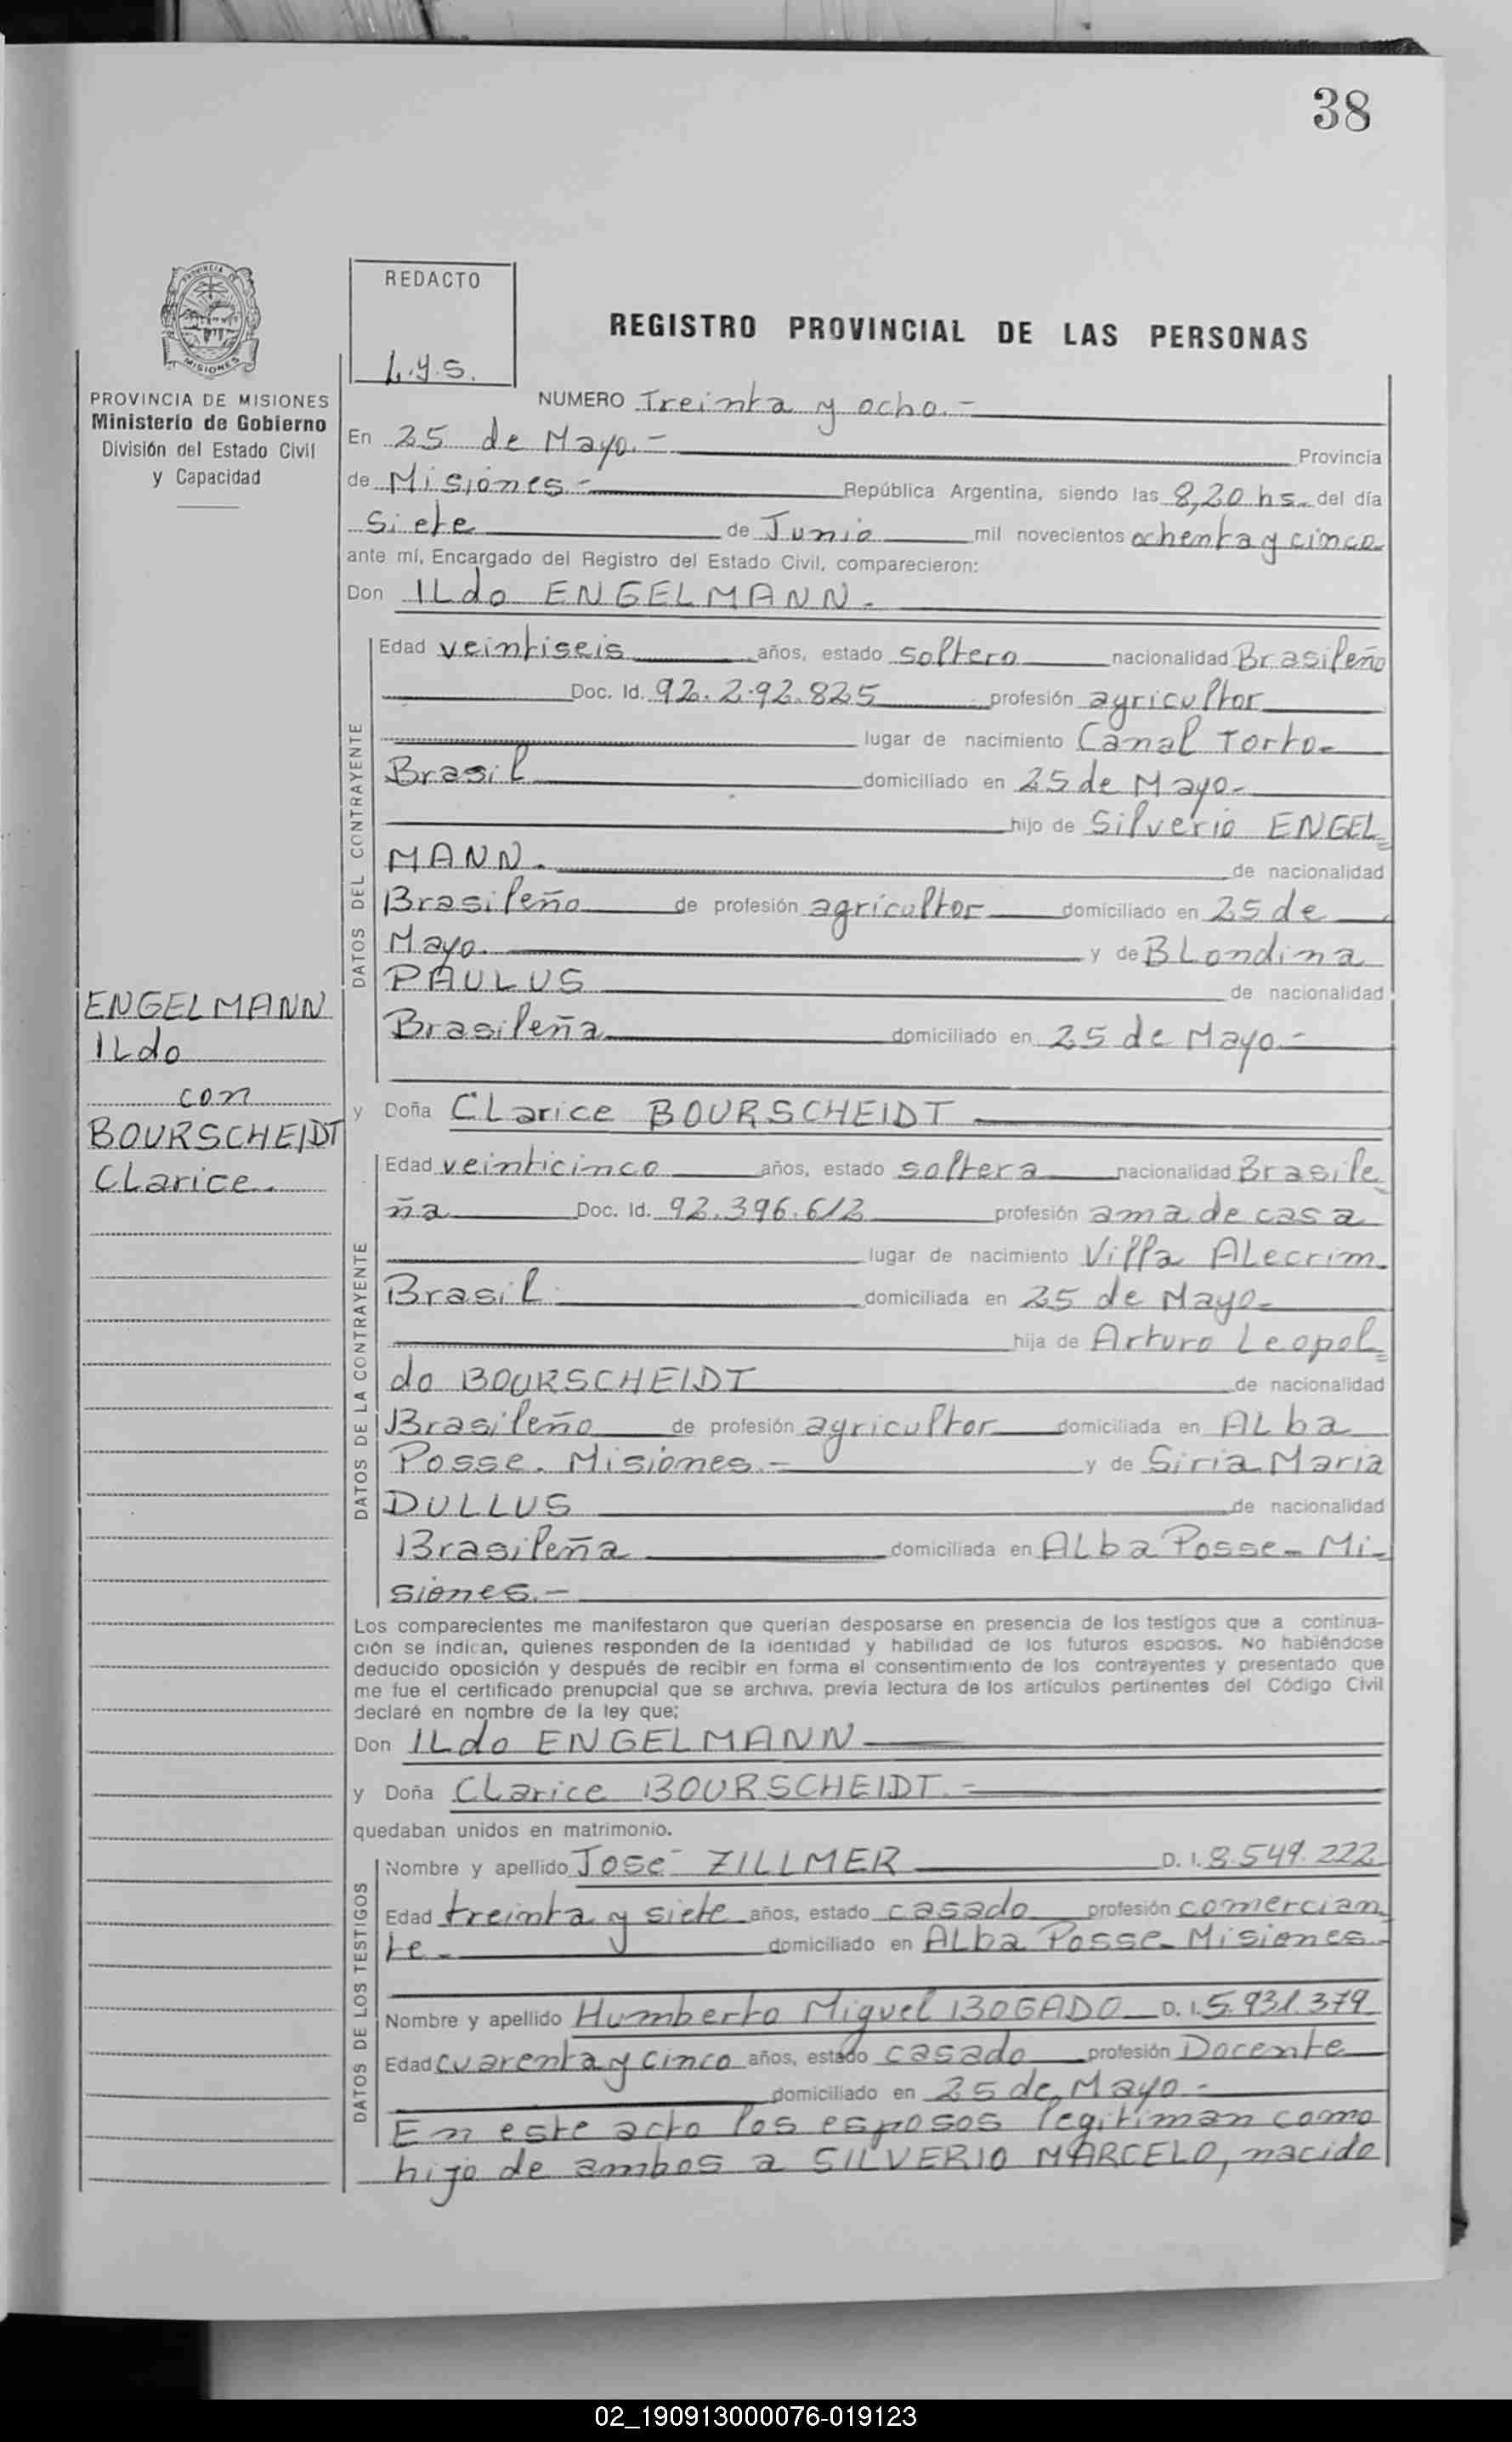 38
PROVINCIA DE
MISIONES
REDACTO
L.y.s.
REGISTRO PROVINCIAL DE LAS PERSONAS
PROVINCIA DE MISIONES
Ministerio de Gobierno
División del Estado Civil
y Capacidad
NUMERO Treinta y ocho.-
En 25 de Mayo.- Provincia
de Misiones.- República Argentina, siendo las 8,20 hs. del día
siete de Junio mil novecientos ochenta y cinco
ante mí, Encargado del Registro del Estado Civil, comparecieron:
Don ILdo ENGELMANN.-
DATOS DEL CONTRAYENTE
Edad veintiseis años, estado soltero nacionalidad Brasileño
Doc. Id. 92.292.825 profesión agricultor
lugar de nacimiento Canal Torto-
Brasil domiciliado en 25 de Mayo-
hijo de Silverio ENGEL=
MANN.- de nacionalidad
Brasileño de profesión agricultor domiciliado en 25 de
Mayo.- y de BLondina
PAULUS de nacionalidad
Brasileña domiciliado en 25 de Mayo.-
ENGELMANN
ILdo
con
BOURSCHEIDT
CLarice.
y Doña CLarice BOURSCHEIDT
DATOS DE LA CONTRAYENTE
Edad veinticinco años, estado soltera nacionalidad Brasile=
ña Doc. Id. 92.396.612 profesión ama de casa
lugar de nacimiento Villa ALecrim-
Brasil domiciliada en 25 de Mayo-
hija de Arturo Leopol=
do BOURSCHEIDT de nacionalidad
Brasileño de profesión agricultor domiciliada en ALba
Posse. Misiones.- y de Siria Maria
DULLUS de nacionalidad
Brasileña domiciliada en ALba Posse- Mi=
siones.-
Los comparecientes me manifestaron que querían desposarse en presencia de los testigos que a continua-
ción se indican, quienes responden de la identidad y habilidad de los futuros esposos. No habiéndose
deducido oposición y después de recibir en forma el consentimiento de los contrayentes y presentado que
me fue el certificado prenupcial que se archiva, previa lectura de los artículos pertinentes del Código Civil
declaré en nombre de la ley que;
Don ILdo ENGELMANN
y Doña CLarice BOURSCHEIDT.-
quedaban unidos en matrimonio.
DATOS DE LOS TESTIGOS
Nombre y apellido José ZILLMER D. I. 8.549.222
Edad treinta y siete años, estado casado profesión comercian=
te.- domiciliado en ALba Posse- Misiones-
Nombre y apellido Humberto Miguel BOGADO D. I. 5.931.379
Edad cuarenta y cinco años, estado casado profesión Docente
domiciliado en 25 de Mayo.-
En este acto los esposos legitiman como
hijo de ambos a SILVERIO MARCELO, nacido
02_190913000076-019123